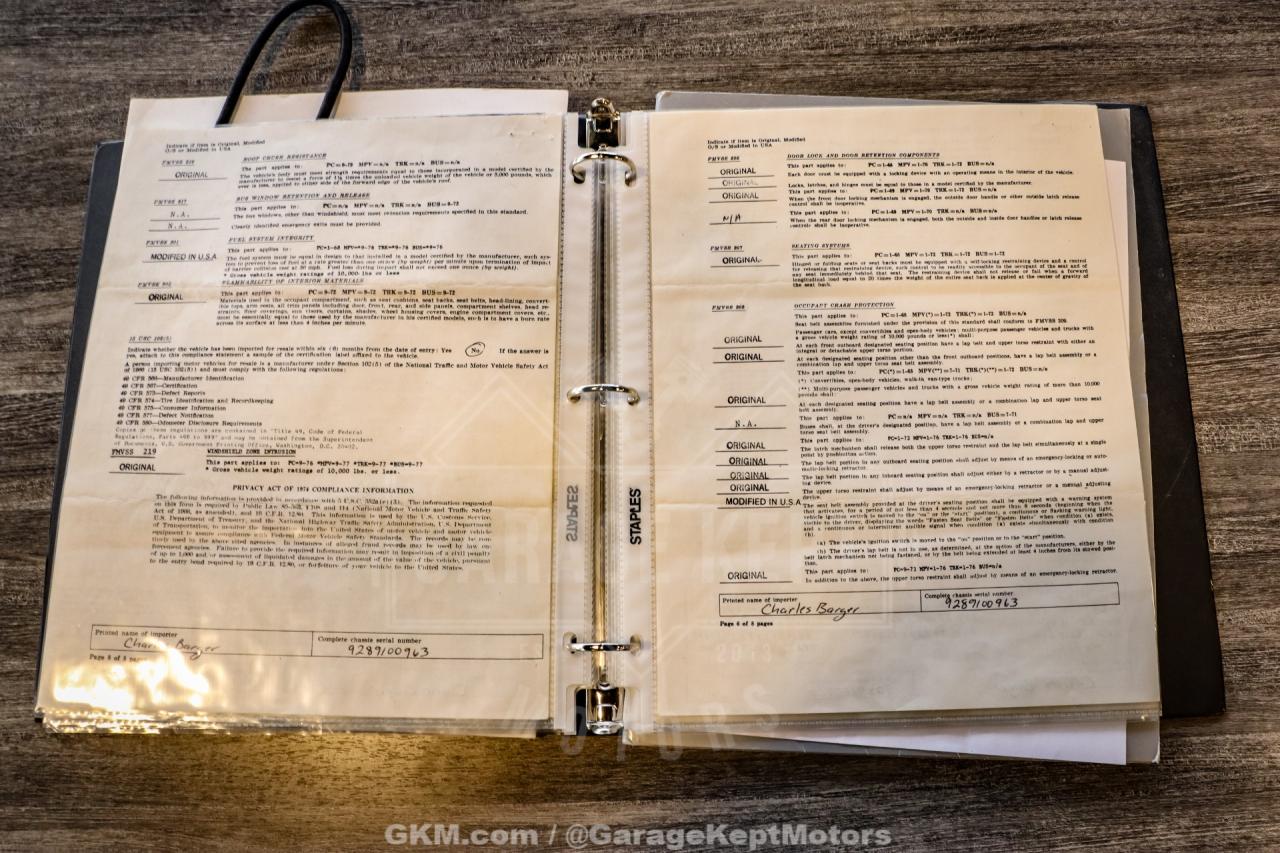 Indicate if item is Original, Modified
O/S or Modified in USA
FMVSS 216 ROOF CRUSH RESISTANCE
ORIGINAL
This part applies to: PC=9-73 MPV=n/a TRK=n/a BUS=n/a
The vehicle's body must meet strength requirements equal to those incorporated in a model certified by the
manufacturer to resist a force of 1½ times the unloaded vehicle weight of the vehicle or 5,000 pounds, which
ever is less, applied to either side of the forward edge of the vehicle's roof.
FMVSS 217 BUS WINDOW RETENTION AND RELEASE
N.A.
This part applies to: PC=n/a MPV=n/a TRK=n/a BUS=9-73
The bus windows, other than windshield, must meet retention requirements specified in this standard.
N.A.
Clearly identified emergency exits must be provided.
FMVSS 301 FUEL SYSTEM INTEGRITY
MODIFIED IN U.S.A
This part applies to: PC=1-68 MPV=*9-76 TRK=*9-76 BUS=*9-76
The fuel system must be equal in design to that installed in a model certified by the manufacturer, such sys-
tem to prevent loss of fuel at a rate greater than one ounce (by weight) per minute upon termination of impact
of barrier collision test at 30 mph. Fuel loss during impact shall not exceed one ounce (by weight).
* Gross vehicle weight ratings of 10,000 lbs or less
FMVSS 302 FLAMMABILITY OF INTERIOR MATERIALS
ORIGINAL
This part applies to: PC=9-72 MPV=9-72 TRK=9-72 BUS=9-72
Materials used in the occupant compartment, such as seat cushions, seat backs, seat belts, head-lining, convert-
ible tops, arm rests, all trim panels including door, front, rear, and side panels, compartment shelves, head re-
straints, floor coverings, sun visors, curtains, shades, wheel housing covers, engine compartment covers, etc.,
must be essentially equal to those used by the manufacturer in his certified models, such is to have a burn rate
across its surface at less than 4 inches per minute.
15 USC 108(5)
Indicate whether the vehicle has been imported for resale within six (6) months from the date of entry: Yes No If the answer is
yes, attach to this compliance statement a sample of the certification label affixed to the vehicle.
A person importing motor vehicles for resale is a manufacturer under Section 102(5) of the National Traffic and Motor Vehicle Safety Act
of 1966 (15 USC 102(5)) and must comply with the following regulations:
49 CFR 566—Manufacturer Identification
49 CFR 567—Certification
49 CFR 573—Defect Reports
49 CFR 574—Tire Identification and Recordkeeping
49 CFR 575—Consumer Information
49 CFR 577—Defect Notification
49 CFR 580—Odometer Disclosure Requirements
Copies of these regulations are contained in "Title 49, Code of Federal
Regulations, Parts 400 to 999" and may be obtained from the Superintendent
of Documents, U.S. Government Printing Office, Washington, D.C. 20402.
FMVSS 219 WINDSHIELD ZONE INTRUSION
ORIGINAL
This part applies to: PC=9-76 *MPV=9-77 *TRK=9-77 *BUS=9-77
* Gross vehicle weight ratings of 10,000 lbs. or less.
PRIVACY ACT OF 1974 COMPLIANCE INFORMATION
The following information is provided in accordance with 5 U.S.C. 552a(e)(3). The information requested
on this form is required by Public Law 89-563,
Act of 1966, as amended), and 19 C.F.R. 12.80. This information is used by the U.S. Customs Service,
U.S. Department of Treasury, and the National Highway Traffic Safety Administration, U.S. Department
of Transportation, to monitor the importation into the United States of motor vehicle and motor vehicle
equipment to assure compliance with Federal Motor Vehicle Safety Standards. The records may be rou-
tinely used by the above cited agencies. In instances of alleged fraud records may be used by law en-
forcement agencies. Failure to provide the required information may result in imposition of a civil penalty
of up to 1,000 and/or assessment of liquidated damages in the amount of the value of the vehicle, pursuant
to the entry bond required by 19 C.F.R. 12.80, or forfeiture of your vehicle to the United States.
Printed name of importer Complete chassis serial number
Charles Barger 9289100963
Page 8 of 8 pages
STAPLES
STAPLES
Indicate if item is Original, Modified
O/S or Modified in USA
FMVSS 206 DOOR LOCK AND DOOR RETENTION COMPONENTS
This part applies to: PC=1-68 MPV=1-70 TRK=1-72 BUS=n/a
ORIGINAL
Each door must be equipped with a locking device with an operating means in the interior of the vehicle.
ORIGINAL
Locks, latches, and hinges must be equal to those in a model certified by the manufacturer.
ORIGINAL
This part applies to: PC=1-68 MPV=1-70 TRK=1-72 BUS=n/a
When the front door locking mechanism is engaged, the outside door handles or other outside latch release
control shall be inoperative.
N/A
This part applies to: PC=1-68 MPV=1-70 TRK=n/a BUS=n/a
When the rear door locking mechanism is engaged, both the outside and inside door handles or latch release
controls shall be inoperative.
FMVSS 207 SEATING SYSTEMS
ORIGINAL
This part applies to: PC=1-68 MPV=1-72 TRK=1-72 BUS=1-72
Hinged or folding seats or seat backs must be equipped with a self-locking restraining device and a control
for releasing that restraining device, such control to be readily accessible to the occupant of the seat and of
any seat immediately behind that seat. The restraining device shall not release or fail when a forward
longitudinal load equal to 20 times the weight of the entire seat back is applied at the center of gravity of
the seat back.
FMVSS 208 OCCUPANT CRASH PROTECTION
This part applies to: PC=1-68 MPV(*)=1-72 TRK(*)=1-72 BUS=n/a
Seat belt assemblies furnished under the provision of this standard shall conform to FMVSS 209.
Passenger cars, except convertibles and open-body vehicles; multi-purpose passenger vehicles and trucks with
a gross vehicle weight rating of 10,000 pounds or less(*) shall:
ORIGINAL
At each front outboard designated seating position have a lap belt and upper torso restraint with either an
integral or detachable upper torso portion.
ORIGINAL
At each designated seating position other than the front outboard positions, have a lap belt assembly or a
combination lap and upper torso seat belt assembly.
This part applies to: PC(*)=1-68 MPV(**)=1-71 TRK(*)(**)=1-72 BUS=n/a
(*) Convertibles, open-body vehicles, walk-in van-type trucks;
(**) Multi-purpose passenger vehicles and trucks with a gross vehicle weight rating of more than 10,000
pounds shall:
ORIGINAL
At each designated seating position have a lap belt assembly or a combination lap and upper torso seat
belt assembly.
This part applies to: PC=n/a MPV=n/a TRK=n/a BUS=1-71
N.A.
Buses shall, at the driver's seating position, have a lap belt assembly or a combination lap and upper
torso seat belt assembly.
PC=1-72 MPV=1-76 TRK=1-76 BUS=n/a
ORIGINAL
The latch mechanism shall release both the upper torso restraint and the lap belt simultaneously at a single
point by pushbutton action.
ORIGINAL
The lap belt portion in any outboard seating position shall adjust by means of an emergency-locking or auto-
matic-locking retractor.
ORIGINAL
The lap belt portion in any inboard seating position shall adjust either by a retractor or by a manual adjust-
ing device.
ORIGINAL
The upper torso restraint shall adjust by means of an emergency-locking retractor or a manual adjusting
device.
MODIFIED IN U.S.A
The seat belt assembly provided at the driver's seating position shall be equipped with a warning system
that activates, for a period of not less than 4 seconds and not more than 8 seconds (beginning when the
vehicle ignition switch is moved to the "on" or the "start" position), a continuous or flashing warning light,
visible to the driver, displaying the words "Fasten Seat Belts" or "Fasten Belts" when condition (a) exists,
and a continuous or intermittent audible signal when condition (a) exists simultaneously with condition
(b).
(a) The vehicle's ignition switch is moved to the "on" position or to the "start" position.
(b) The driver's lap belt is not in use, as determined, at the option of the manufacturers, either by the
belt latch mechanism not being fastened, or by the belt being extended at least 4 inches from its stowed posi-
tion.
This part applies to: PC=9-71 MPV=1-76 TRK=1-76 BUS=n/a
ORIGINAL
In addition to the above, the upper torso restraint shall adjust by means of an emergency-locking retractor.
Printed name of importer Complete chassis serial number
Charles Barger 9289100963
Page 6 of 8 pages
GARAGE KEPT
2013
MOTORS
GKM.com / @GarageKeptMotors